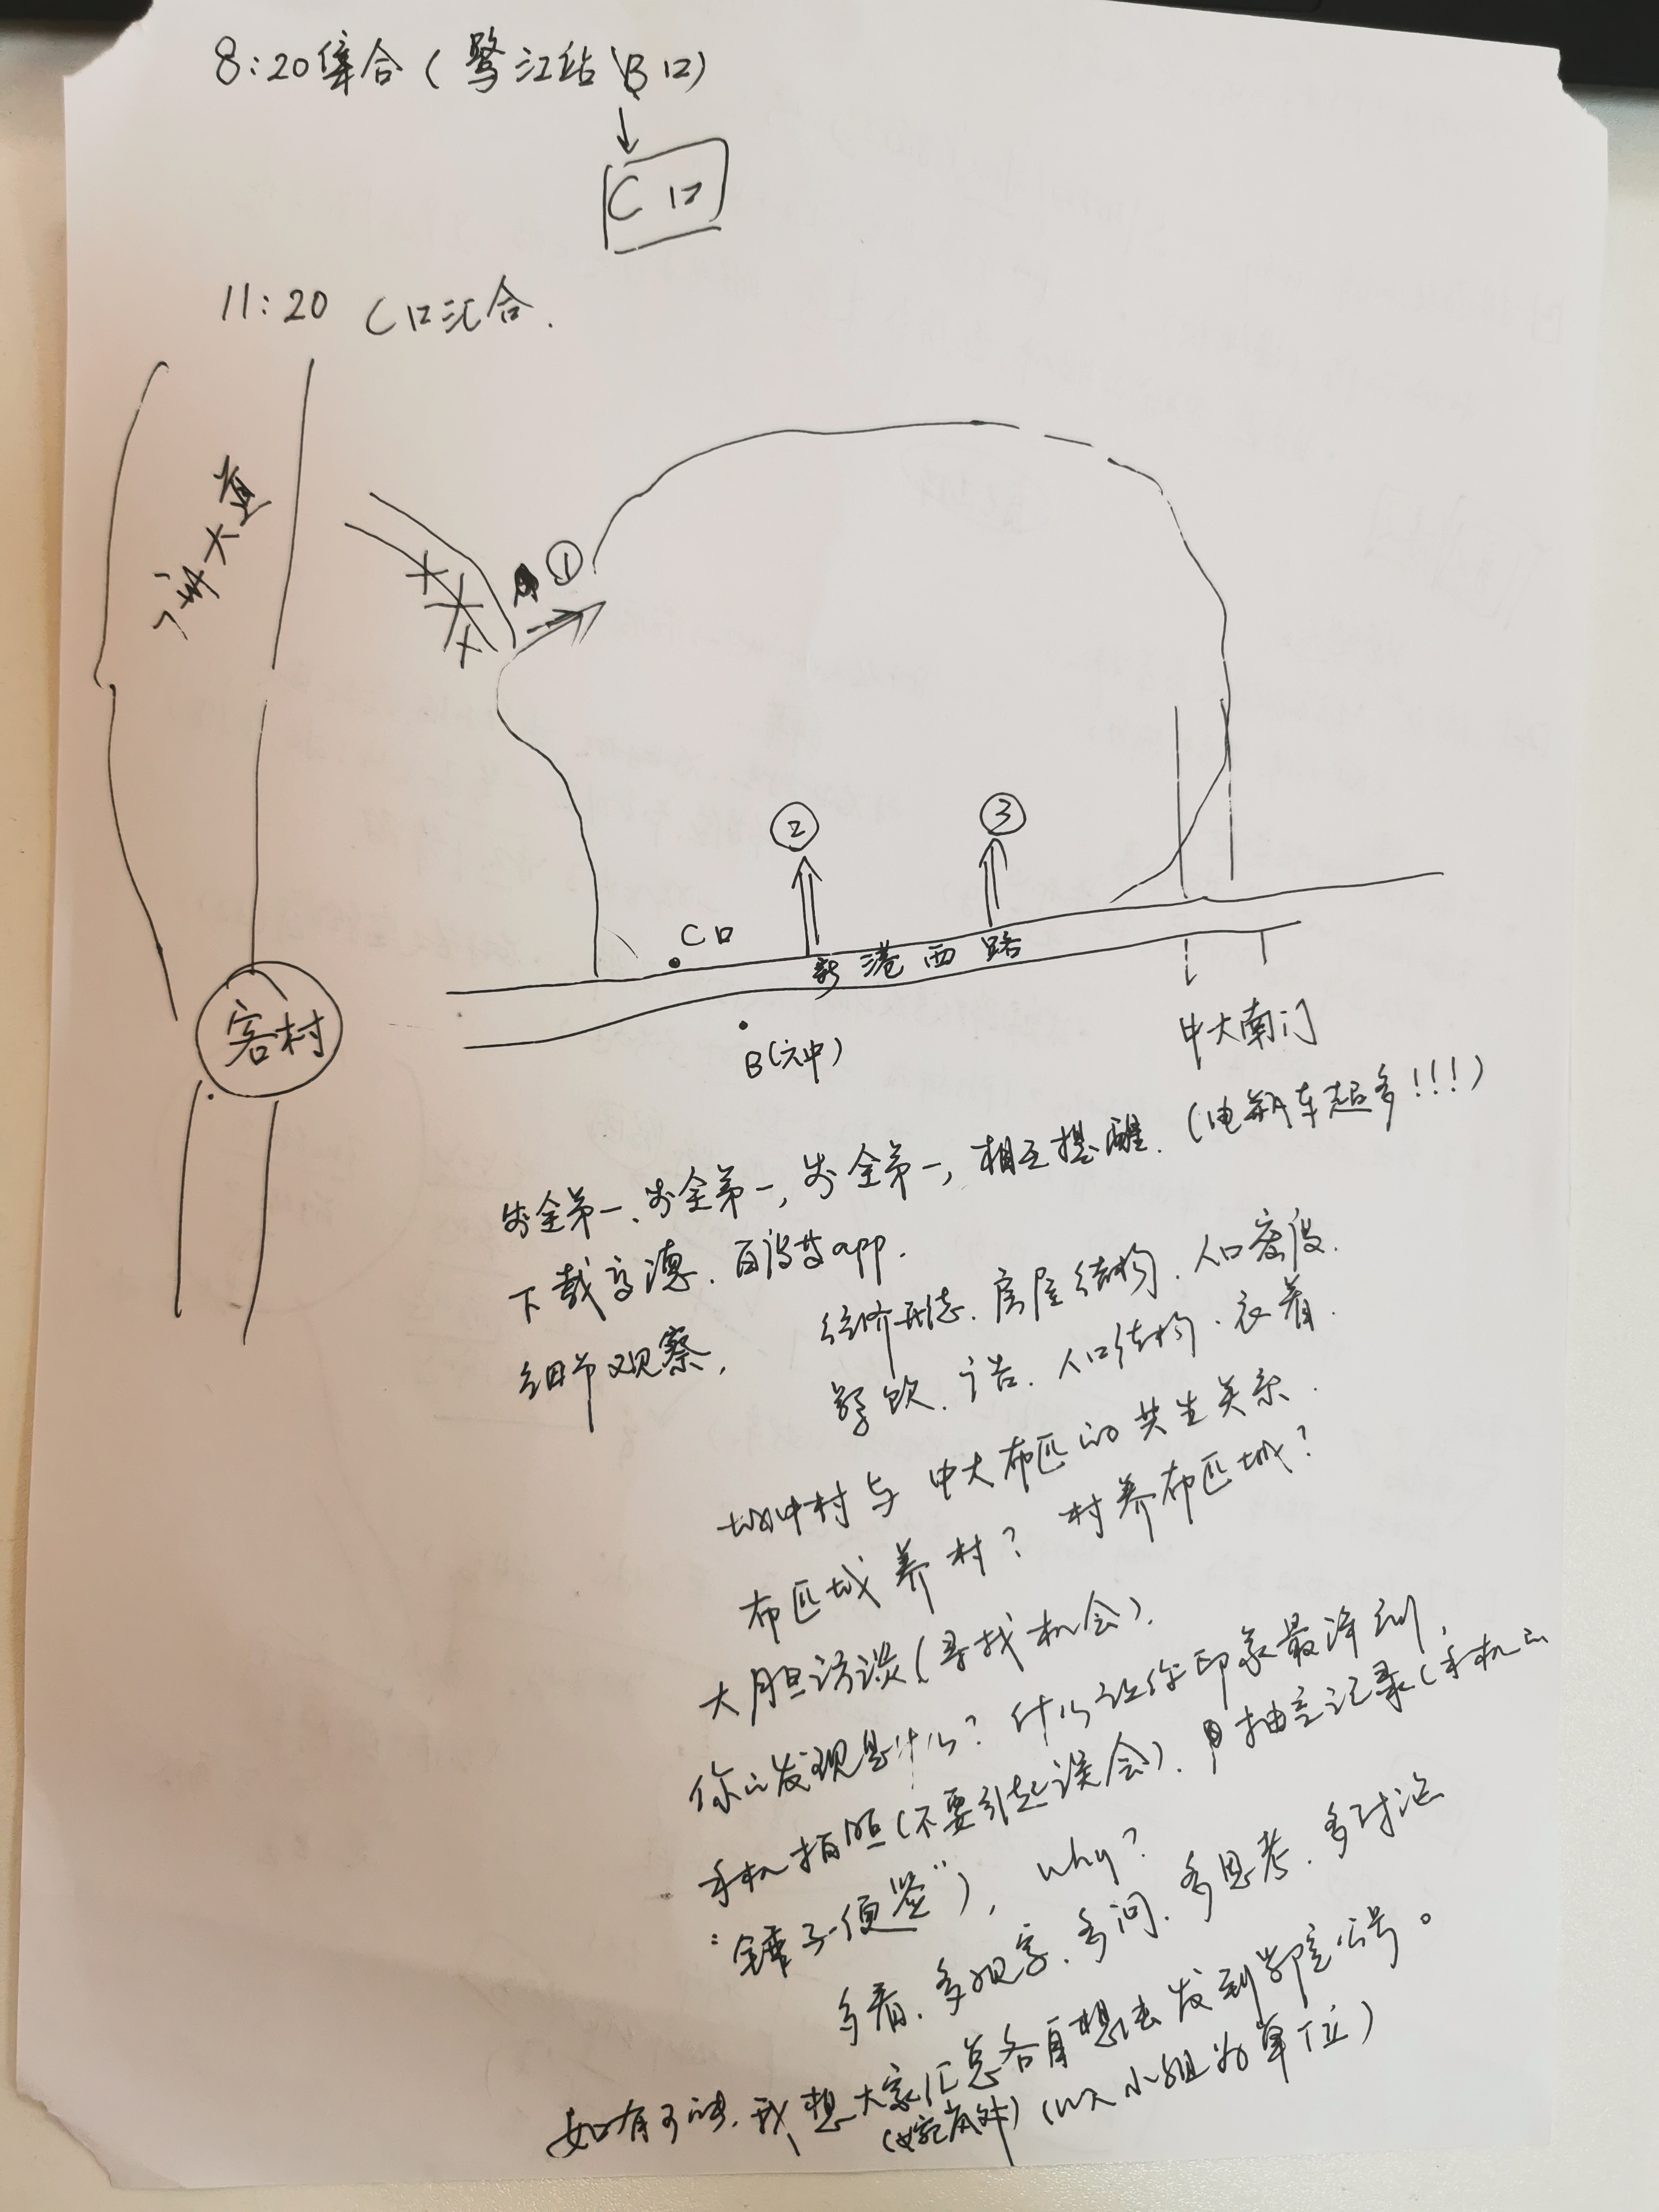 8:20集合(鹭江站B口)
C口
11:20 C口汇合.
广州大道
①
②
③
C口
新港西路
客村
B(六中)
中大南门
安全第一、安全第一,安全第一,相互提醒.(电瓶车超多!!!)
下载高德.百度等app.
细节观察,
经济形态.房屋结构.人口密度.
餐饮.语.人口结构.衣着.
城中村与中大布匹的共生关系.
布匹城养村?村养布匹城?
大胆访谈(寻找机会).
你的发现是什么?什么让你印象最深刻,
手机拍照(不要引起误会).用抽空记录(手机的
"锤子便签"),why?
多看.多观察.多问.多思考.多讨论
如有可能.我想大家汇总各自想法发到公号。
(以小组为单位)